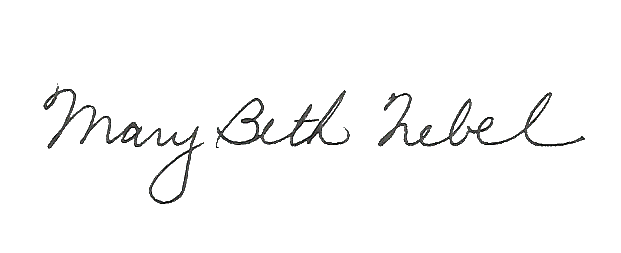 Mary Beth Nebel